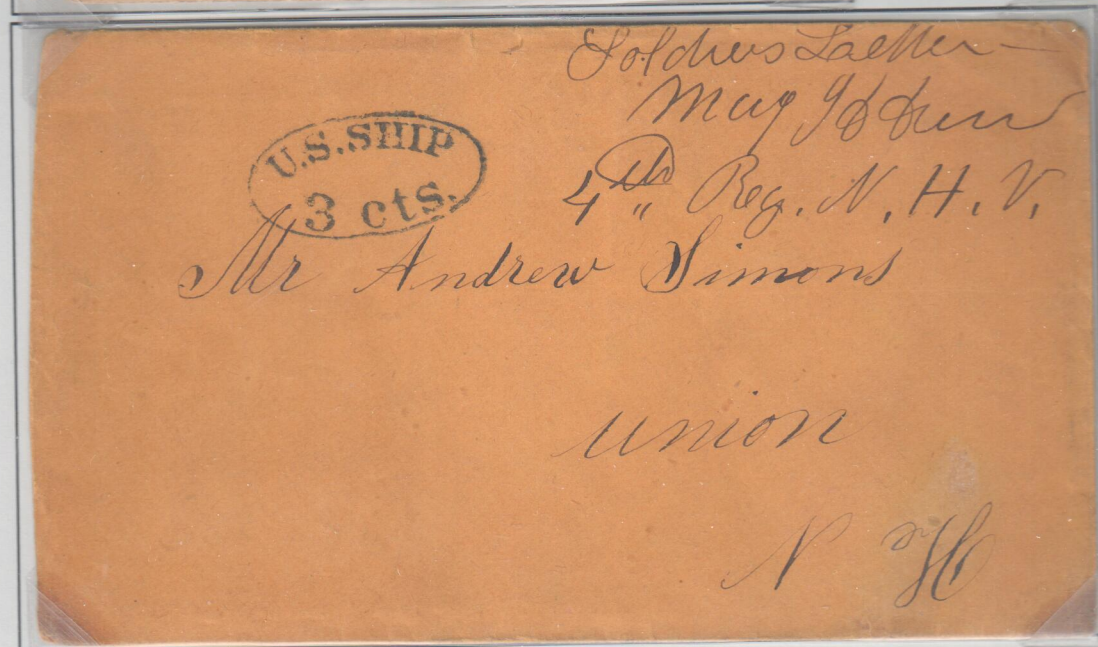 Soldiers Letter
Maj J D Drew
4th Reg. N. H. V.
U.S. SHIP
3 cts.
Mr Andrew Simons
Union
N H